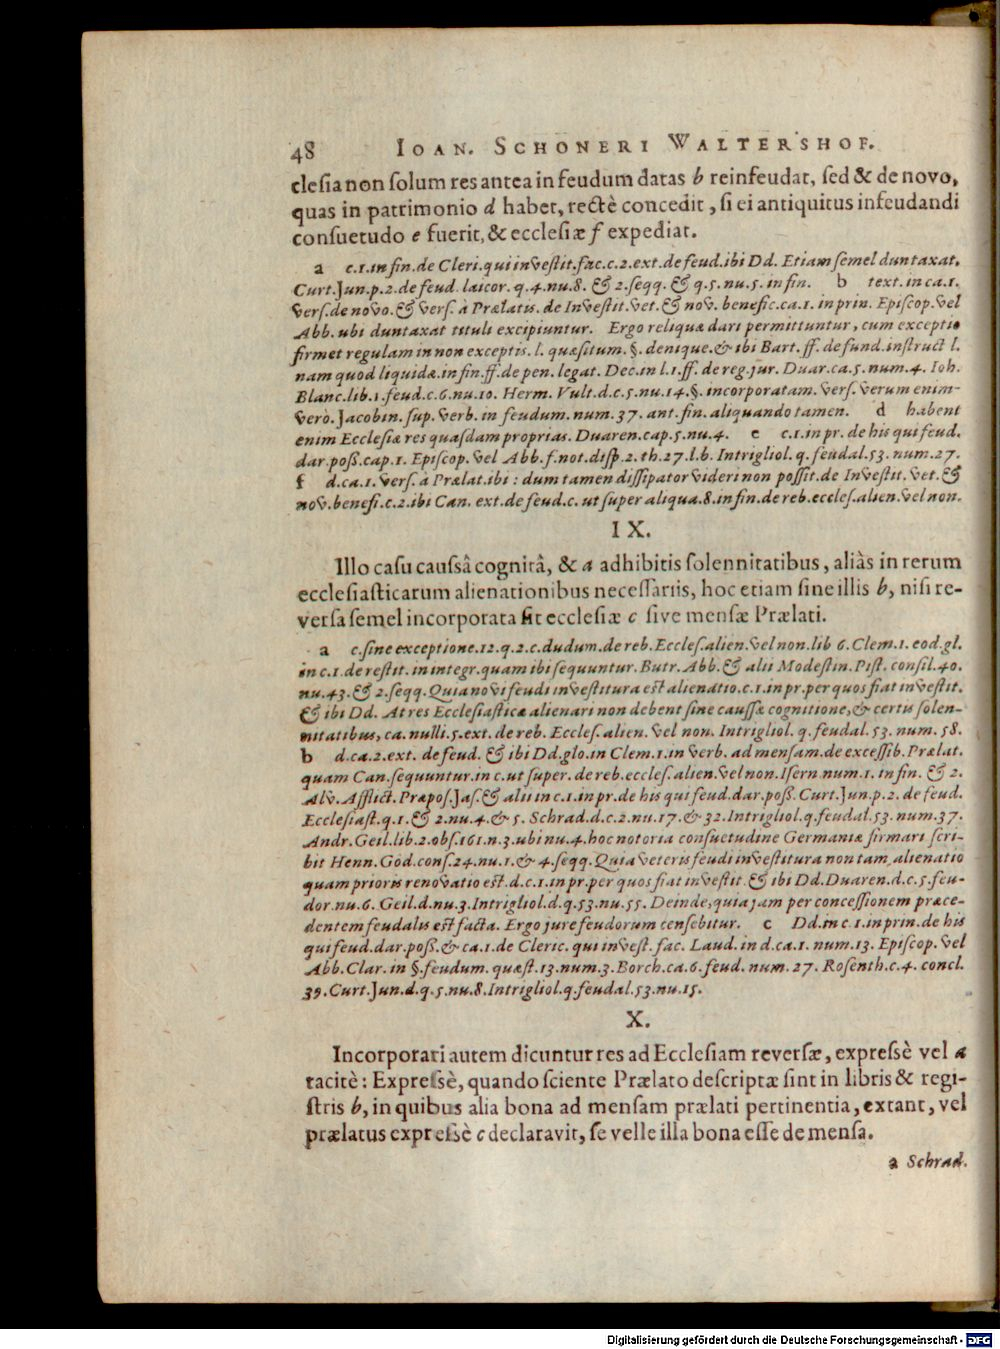 48 IOAN. SCHONERI WALTERSHOF.
clesia non solum res antea in feudum datas b reinfeudat, sed & de novo,
quas in patrimonio d habet, rectè concedit, si ei antiquitus infeudandi
consuetudo e fuerit, & ecclesiæ f expediat.
a c.1.in fin.de Cleri.qui invest.fac.c.2.ext.de feud.ibi Dd. Etiam semel duntaxat.
Curt.Jun.p.2.de feud. laicor. q.4.nu.8. & 2.seqq. & q.5.nu.5.in fin. b text.in ca.1.
vers.de novo.& vers. à Prælatis. de Investit.vet.& nov. benefic.ca.1.in prin. Episcop.vel
Abb. ubi duntaxat tituli excipiuntur. Ergo reliquæ dari permittuntur, cum exceptio
firmet regulam in non exceptis. l. quæsitum. §. denique.& ibi Bart. ff. de fund.instruct l.
nam quod liquidæ.in fin.ff.de pen. legat. Dec.in l.1.ff. de reg.jur. Duar.ca.5.num.4. Ioh.
Blanc.lib.1.feud.c.6.nu.10. Herm. Vult.d.c.5.nu.14.§. incorporatam. vers. verum enim-
verò. Jacobin.sup. verb. in feudum. num.37. ant.fin. aliquando tamen. d habent
enim Ecclesiæ res quasdam proprias. Duaren.cap.5.nu.4. e c.1.in pr. de his qui feud.
dar.poß.cap.1. Episcop. vel Abb.f.not.disp.2.th.27.l.b. Intrigliol. q. feudal.53. num.27.
f d.ca.1.vers.à Prælat.ibi: dum tamen dissipator videri non possit.de Investit. vet.&
nov.benefi.c.2.ibi Can. ext.de feud.c. ut super aliqua.8.in fin.de reb.eccles.alien.vel non.
IX.
Illo casu caussâ cognitâ, & a adhibitis solennitatibus, aliàs in rerum
ecclesiasticarum alienationibus necessariis, hoc etiam sine illis b, nisi re-
versa semel incorporata sit ecclesiæ c sive mensæ Prælati.
a c.sine exceptione.12.q.2.c.dudum.de reb.Eccles.alien.vel non.lib 6.Clem.1.eod.gl.
in c.1.de restit.in integr.quam ibi sequuntur. Butr. Abb.& alii Modestin. Pist. consil.40.
nu.43.& 2.seqq.Quia novi feudi investitura est alienatio.c.1.in pr.per quos fiat invest.
& ibi Dd. At res Ecclesiasticæ alienari non debent sine caussæ cognitione,& certis solen-
nitatibus, ca. nulli.5.ext.de reb. Eccles. alien. vel non. Intrigliol. q. feudal. 53. num. 58.
b d.ca.2.ext. de feud. & ibi Dd.glo.in Clem.1.in verb. ad mensam.de excessib.Prælat.
quam Can.sequuntur.in c.ut super.de reb.eccles.alien.vel non.Isern.num.1. in fin. & 2.
Alv. Afflict. Præpos.Jas.& alii in c.1.in pr.de his qui feud.dar.poß. Curt.Jun.p.2. de feud.
Ecclesiast.q.1.& 2.nu.4.& 5. Schrad.d.c.2.nu.17.& 32.Intrigliol.q.feudal.53.num.37.
Andr. Geil.lib.2.obs.161.n.3.ubi nu.4. hoc notoria consuetudine Germaniæ firmari scri-
bit Henn.God.cons.24.nu.1.& 4.seqq.Quia veteris feudi investitura non tam alienatio
quam prioris renovatio est.d.c.1.in pr.per quos fiat invest.& ibi Dd.Duaren.d.c.5.feu-
dor.nu.6. Geil.d.nu.3.Intrigliol.d.q.53.nu.55. Deinde,quia jam per concessionem præce-
dentem feudalis est facta. Ergo jure feudorum censebitur. c Dd.in c.1.in prin.de his
qui feud.dar.poß.& ca.1.de Cleric. qui invest. fac. Laud. in d.ca.1. num.13. Episcop. vel
Abb. Clar. in §.feudum. quæst.13.num.3.Borch.ca.6.feud. num. 27. Rosenth.c.4. concl.
39.Curt.Jun.d.q.5.nu.8.Intrigliol.q.feudal.53.nu.15.
X.
Incorporari autem dicuntur res ad Ecclesiam reversæ, expressè vel a
tacitè: Expressè, quando sciente Prælato descriptæ sint in libris & regi-
stris b, in quibus alia bona ad mensam prælati pertinentia, extant, vel
prælatus expressè c declaravit, se velle illa bona esse de mensa.
a Schrad.
Digitalisierung gefördert durch die Deutsche Forschungsgemeinschaft - DFG